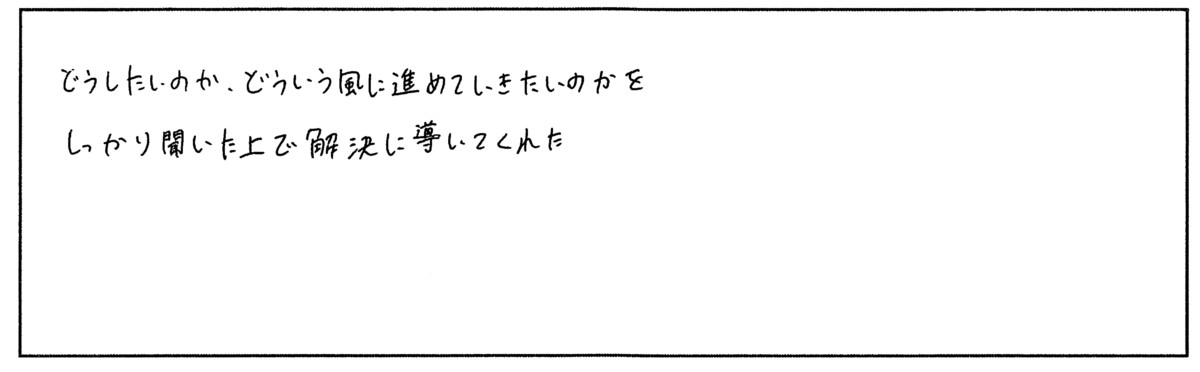 どうしたいのか、どういう風に進めていきたいのかを
しっかり聞いた上で解決に導いてくれた